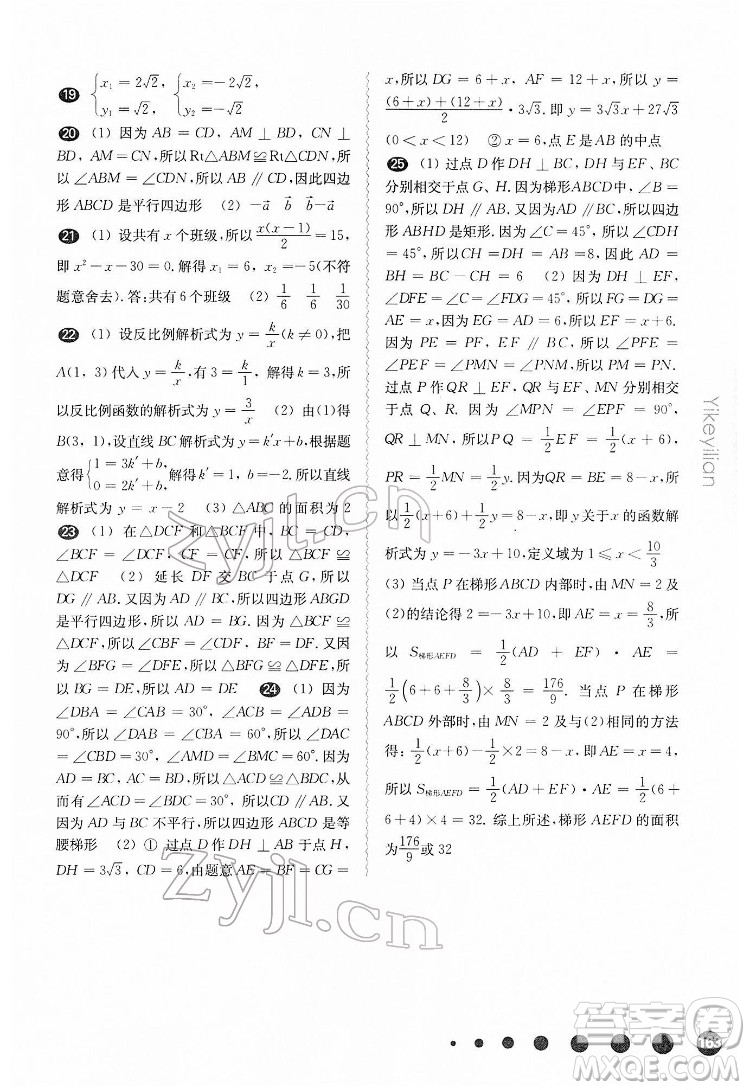 19 { x₁ = 2√2, { x₂ = −2√2,
y₁ = √2, y₂ = −√2
20 (1) 因为 AB = CD, AM ⊥ BD, CN ⊥
BD, AM = CN, 所以 Rt△ABM ≌ Rt△CDN, 所
以∠ABM = ∠CDN, 所以 AB ∥ CD, 因此四边
形 ABCD 是平行四边形 (2) −a⃗ b⃗ b⃗−a⃗
21 (1) 设共有 x 个班级, 所以 x(x−1)/2 = 15,
即 x² − x − 30 = 0. 解得 x₁ = 6, x₂ = −5(不符
题意舍去). 答: 共有 6 个班级 (2) 1/6 1/6 1/30
22 (1) 设反比例解析式为 y = k/x (k ≠ 0), 把
A(1, 3) 代入 y = k/x, 有 3 = k/1, 解得 k = 3. 所
以反比例函数的解析式为 y = 3/x (2) 由(1)得
B(3, 1), 设直线 BC 解析式为 y = k′x + b, 根据题
意得 { 1 = 3k′ + b, 0 = 2k′ + b. 解得 k′ = 1, b = −2. 所以直线
解析式为 y = x − 2 (3) △ABC 的面积为 2
23 (1) 在 △DCF 和 △BCF 中, BC = CD,
∠BCF = ∠DCF, CF = CF, 所以 △BCF ≌
△DCF (2) 延长 DF 交 BC 于点 G, 所以
DG ∥ AB. 又因为 AD ∥ BC, 所以四边形 ABGD
是平行四边形, 所以 AD = BG. 因为 △BCF ≌
△DCF, 所以∠CBF = ∠CDF, BF = DF. 又因
为 ∠BFG = ∠DFE, 所以 △BFG ≌ △DFE, 所
以 BG = DE, 所以 AD = DE 24 (1) 因为
∠DBA = ∠CAB = 30°, ∠BCA = ∠ADB =
90°, 所以 ∠DAB = ∠CBA = 60°, 所以 ∠DAC
= ∠CBD = 30°, ∠AMD = ∠BMC = 60°. 因为
AD = BC, AC = BD, 所以 △ADC ≌ △BCD,
从而 ∠ACD = ∠BDC = 30°, 所以 AB ∥ CD. 又
因为 AD 与 BC 不平行, 所以四边形 ABCD 是等
腰梯形 (2) ① 过点 D 作 DH ⊥ AB 于点 H,
DH = 3√3, CD = 6, 由题意 AE = BF = CG =
x, 所以 DG = 6 + x, AF = 12 + x, 所以 y =
(6+x)+(12+x)/2 · 3√3. 即 y = 3√3x + 27√3
(0 < x < 12) ② x = 6, 点 E 是 AB 的中点
25 (1) 过点 D 作 DH ⊥ BC, DH 与 EF、BC
分别相交于点 G、H. 因为梯形 ABCD 中, ∠B =
90°, 所以 DH ∥ AB. 又因为 AD ∥ BC, 所以四边
形 ABHD 是矩形. 因为 ∠C = 45°, 所以 ∠CDH
= 45°, 所以 CH = DH = AB = 8, 所以 AD =
BH = BC − CH = 6 (2) 因为 DH ⊥ EF,
∠DFE = ∠C = ∠FDG = 45°, 所以 FG = DG =
AE = x. 因为 EG = AD = 6, 所以 EF = x + 6.
因为 PE = PF, EF ∥ BC, 所以 ∠PFE =
∠PEF = ∠PMN = ∠PNM, 所以 PM = PN.
过点 P 作 QR ⊥ EF, QR 与 EF、MN 分别相交
于点 Q、R. 因为 ∠MPN = ∠EPF = 90°,
QR ⊥ MN, 所以 PQ = 1/2 EF = 1/2 (x + 6),
PR = 1/2 MN = 1/2 y. 因为 QR = BE = 8 − x, 所
以 1/2 (x + 6) + 1/2 y = 8 − x, 即 y 关于 x 的函数解
析式为 y = −3x + 10, 定义域为 1 ⩽ x < 10/3
(3) 当点 P 在梯形 ABCD 内部时, 由 MN = 2 及
(2)的结论得 2 = −3x + 10, 即 AE = x = 8/3, 所
以 S梯形AEFD = 1/2 (AD + EF) · AE =
1/2 (6 + 6 + 8/3) × 8/3 = 176/9. 当点 P 在梯形
ABCD 外部时, 由 MN = 2 及与(2)相同的方法
得: 1/2 (x + 6) − 1/2 × 2 = 8 − x, 即 AE = x = 4,
所以 S梯形AEFD = 1/2 (AD + EF) · AE = 1/2 (6 +
6 + 4) × 4 = 32. 综上所述, 梯形 AEFD 的面积
为 176/9 或 32
Yikeyilian
zyjl.cn
zyjl.cn
163
答案卷
MXQE.COM